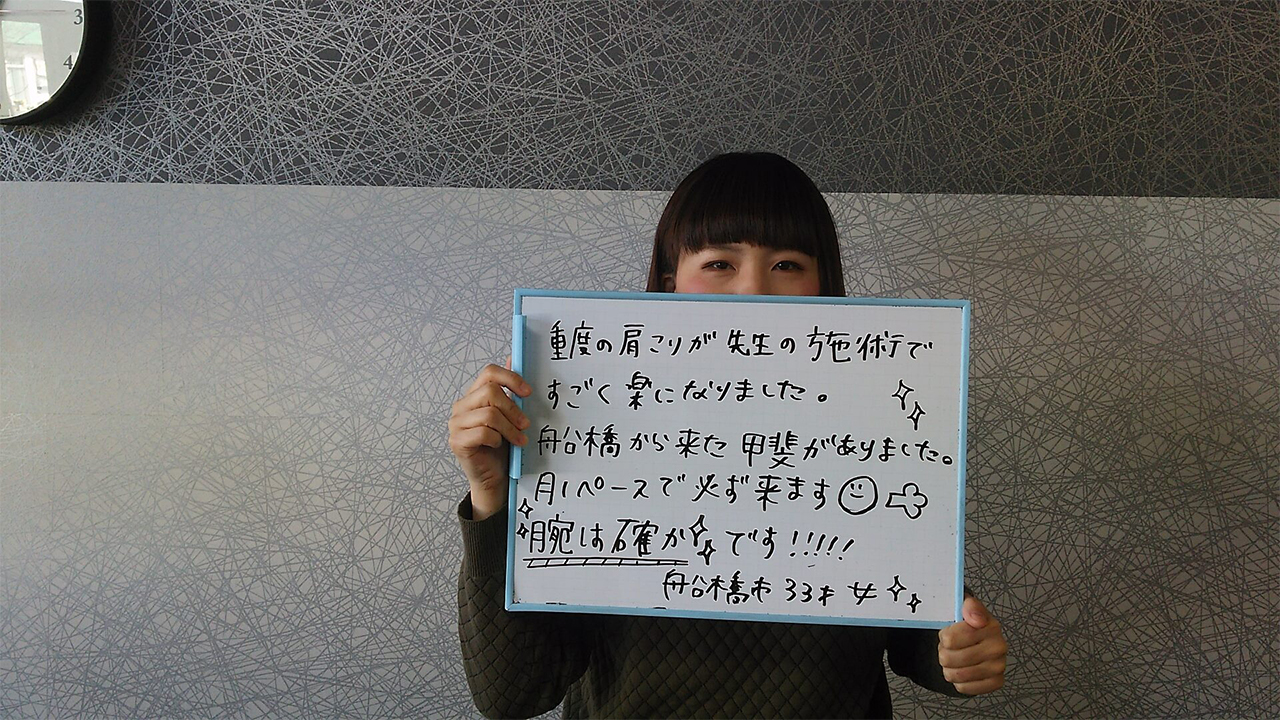 3
4
重度の肩こりが先生の施術で
すごく楽になりました。
船橋から来た甲斐がありました。
月1ペースで必ず来ます
腕は確かです!!!!!
船橋市 33才 女